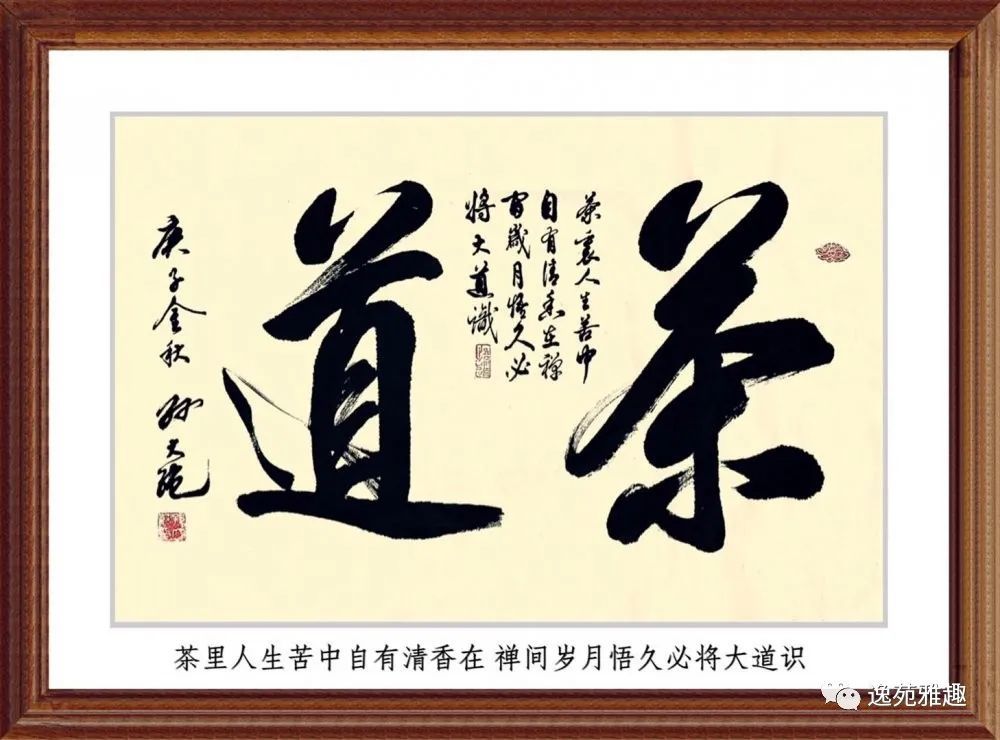 茶
茶裏人生苦中
自有清香在禅
間歲月悟久必
將大道識
道
庚子金秋 孙大
茶里人生苦中自有清香在 禅间岁月悟久必将大道识
逸苑雅趣